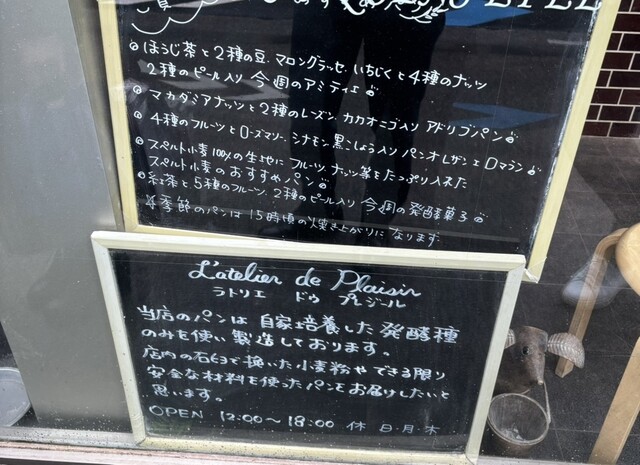 ほうじ茶と2種の豆、マロングラッセ、いちじくと4種のナッツ
2種のピール入り 今週のアミティエ
マカダミアナッツと2種のレーズン、カカオニブ入り アドリブパン
4種のフルーツとローズマリー、シナモン、黒こしょう入り パンオレザンエロマラン
スペルト小麦100%の生地に フルーツ、ナッツ等をたっぷり入れた
スペルト小麦のおすすめパン
紅茶と5種のフルーツ、2種のピール入り 今週の発酵菓子
季節のパンは 15時頃の焼き上がりになります
L'atelier de Plaisir
ラトリエ ドゥ プレジール
当店のパンは 自家培養した発酵種
のみを使い製造しております。
店内の石臼で挽いた小麦粉や できる限り
安全な材料を使ったパンをお届けしたいと
思います。
OPEN 12:00〜18:00 休 日・月・木